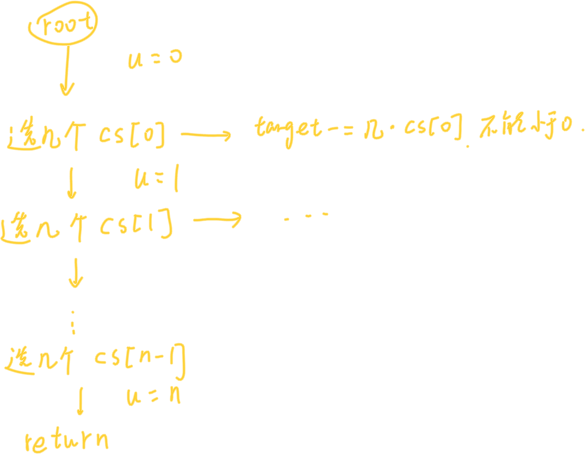 root
u=0
选几个 cs[0] → target -= 几·cs[0] 不能小于0.
u=1
选几个 cs[1] → ...
⋮
选几个 cs[n-1]
u=n
return